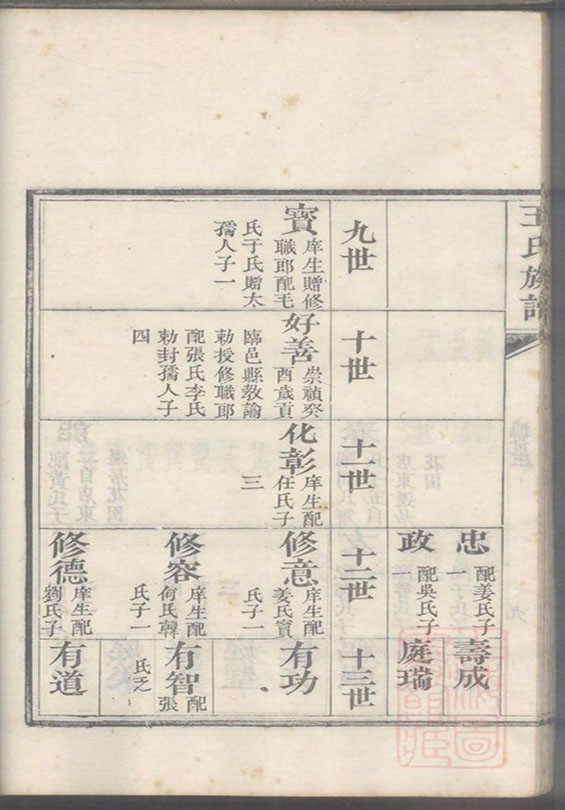 王氏族譜
忠
配姜氏子
一
壽成
政
配吳氏子
一
庭瑞
九世
十世
十一世
十二世
十三世
寳
庠生贈修
職郎配毛
氏于氏贈太
孺人子一
好善
崇禎癸
酉歲貢
臨邑縣教諭
勅授修職郎
配張氏李氏
勅封孺人子
四
化彰
庠生配
任氏子
三
修意
庠生配
姜氏竇
氏子二
有功
修容
庠生配
何氏韓
氏子一
有智
配張
氏乏
修德
庠生配
劉氏子
有道